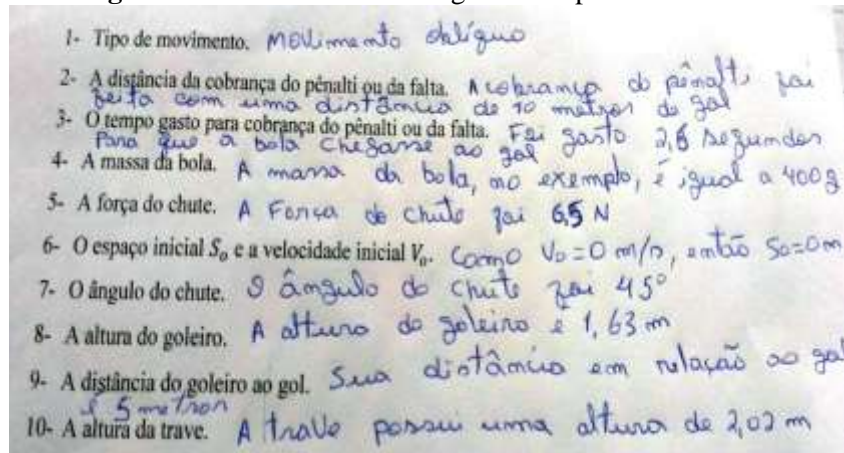 1- Tipo de movimento. Movimento oblíquo
2- A distância da cobrança do pênalti ou da falta. A cobrança do pênalti foi
feita com uma distância de 10 metros do gol
3- O tempo gasto para cobrança do pênalti ou da falta. Foi gasto 2,6 segundos
Para que a bola chegasse ao gol
4- A massa da bola. A massa da bola, no exemplo, é igual a 400g
5- A força do chute. A Força do chute foi 6,5 N
6- O espaço inicial S₀ e a velocidade inicial V₀. Como V₀=0 m/s, então S₀=0m
7- O ângulo do chute. O ângulo do chute foi 45°
8- A altura do goleiro. A altura do goleiro é 1,63 m
9- A distância do goleiro ao gol. Sua distância em relação ao gol
é 5 metros
10- A altura da trave. A trave possui uma altura de 2,02 m